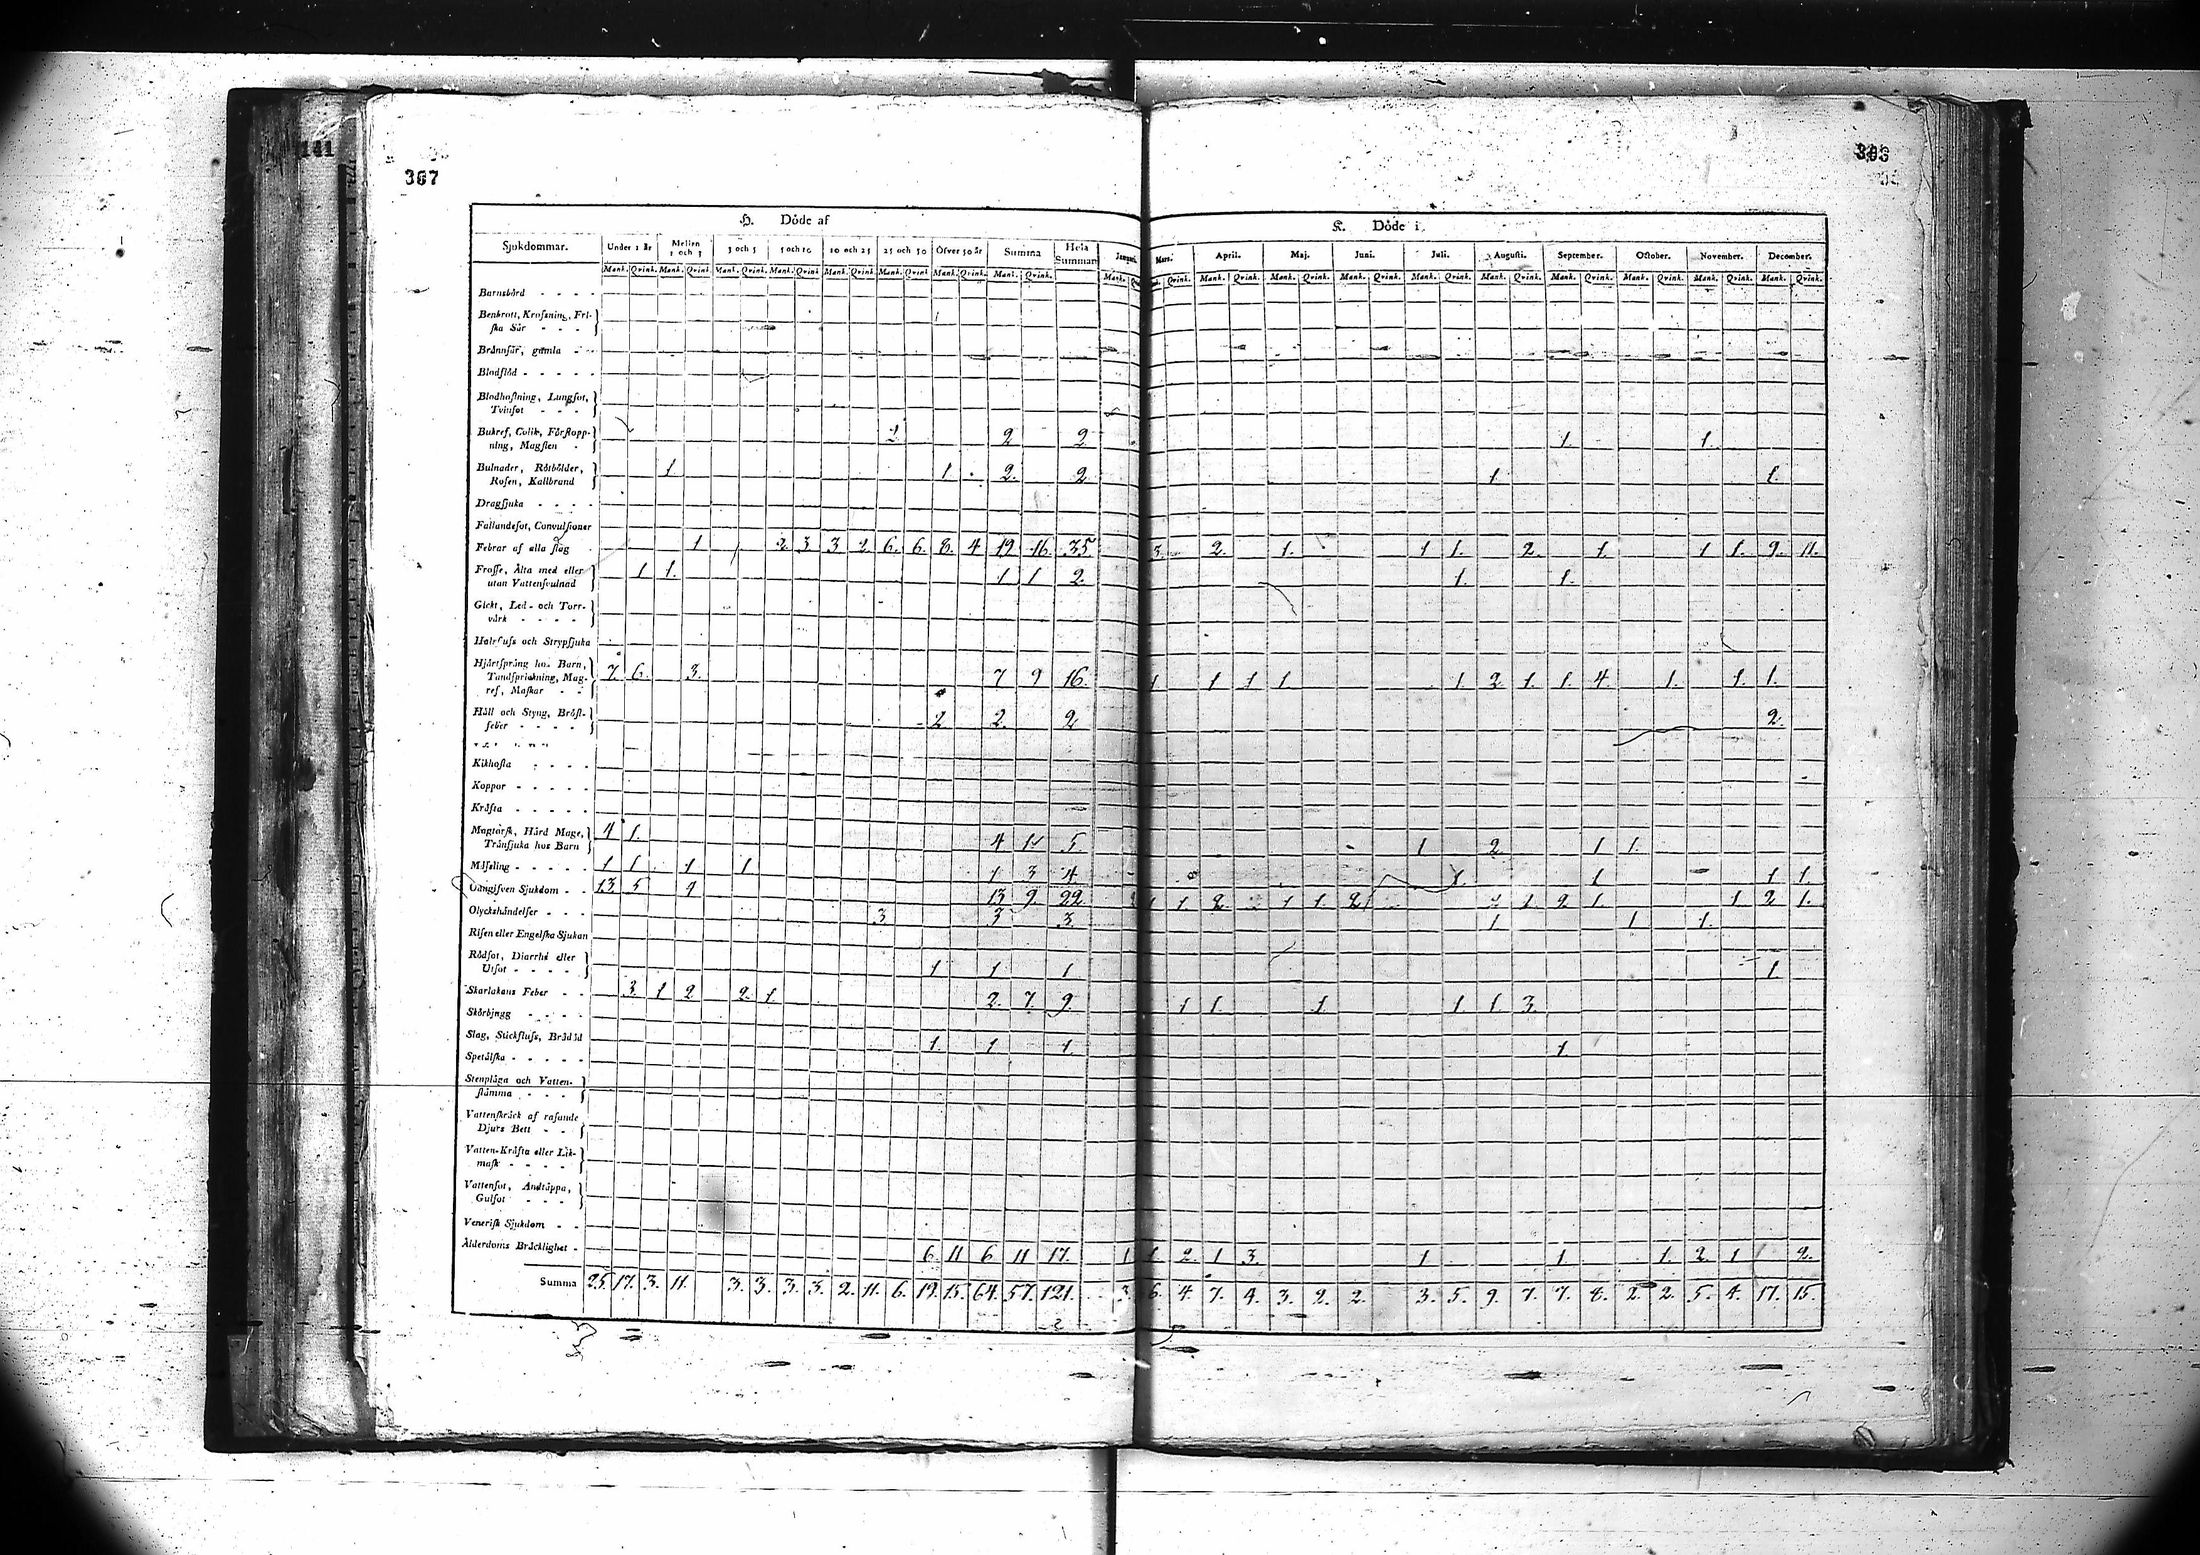 141
367
H. Döde af
K. Döde i
Sjukdommar. Under 1 år Mellen 1 och 3 3 och 5 5 och 10 10 och 25 25 och 50 Öfver 50 år Summa Hela Summan Januari. Mars. April. Maj. Juni. Juli. Augusti. September. October. November. December.
Mank. Qvink. Mank. Qvink. Mank. Qvink. Mank. Qvink. Mank. Qvink. Mank. Qvink. Mank. Qvink. Mank. Qvink. Mank. Qvink. Mank. Qvink. Mank. Qvink. Mank. Qvink. Mank. Qvink. Mank. Qvink. Mank. Qvink. Mank. Qvink. Mank. Qvink. Mank. Qvink.
Barnsbörd - - - -
Benbrott, Krossning, Fri-
ska Sår - - -
Brännsår, gamla - -
Blodflöd - - - - -
Blodhostning, Lungsot,
Tvinsot - - -
Bukref, Colik, Förstopp-
ning, Magsten - 2 2 2 1. 1.
Bulnader, Rötbölder,
Rosen, Kallbrand 1 1 2. 2 1. 1.
Dragsjuka - - - -
Fallandesot, Convulsioner
Febrar af alla slag 1 2 3 3 2 6. 6. 8. 4 19 16. 35 3. 2. 1. 1 1. 2. 1. 1 1. 9. 11.
Frosse, Älta med eller
utan Vattensvulnad 1 1. 1 1 2. 1. 1.
Gickt, Led- och Torr-
värk - - - -
Halsfluss och Strypsjuka
Hjärtsprång hos Barn,
Tandsprickning, Mag-
ref, Maskar - - 7. 6. 3. 7 9 16. 1 1 1 1. 1. 2 1. 1. 4. 1. 1. 1.
Håll och Styng, Bröst-
feber - - - - 2 2. 2 2.
Kikhosta - - - -
Koppor - - - - -
Kräfta - - - - -
Magtorsk, Hård Mage,
Tränsjuka hos Barn 4 1. 4 1 5. 1 2 1 1.
Mässling - - - - - 1 1. 1 1 1 3 4. 1. 1 1 1
Oangifven Sjukdom - - 13 5 4 13 9. 22. 1 1. 2. 1 1. 2 1 1. 2 1. 1 2 1.
Olyckshändelser - - - 3 3 3. 1. 1 1.
Risen eller Engelska Sjukan
Rödsot, Diarrhé eller
Utsot - - - - - 1 1 1 1.
Skarlakans Feber - - 3. 1 2 2. 1 2. 7. 9. 1 1. 1. 1 1. 3.
Skörbjugg - - - -
Slag, Stickfluss, Brådöd 1. 1 1. 1
Spetälska - - - - -
Stenplåga och Vatten-
stämma - - - -
Vattenskräck af rasande
Djurs Bett - -
Vatten-Kräfta eller Lik-
mask - - - -
Vattensot, Andtäppa,
Gulsot - - -
Venerisk Sjukdom - -
Ålderdoms Bräcklighet - 6. 11 6 11 17. 1 1. 2 1 3. 1 1 1. 2 1 2.
Summa 25. 17. 3. 11. 3. 3. 3. 3. 2. 11. 6. 19. 15. 64. 57. 121. 3 6. 4. 7. 4. 3. 2. 2. 3. 5. 9. 7. 7. 8. 2. 2. 5. 4. 17. 15.